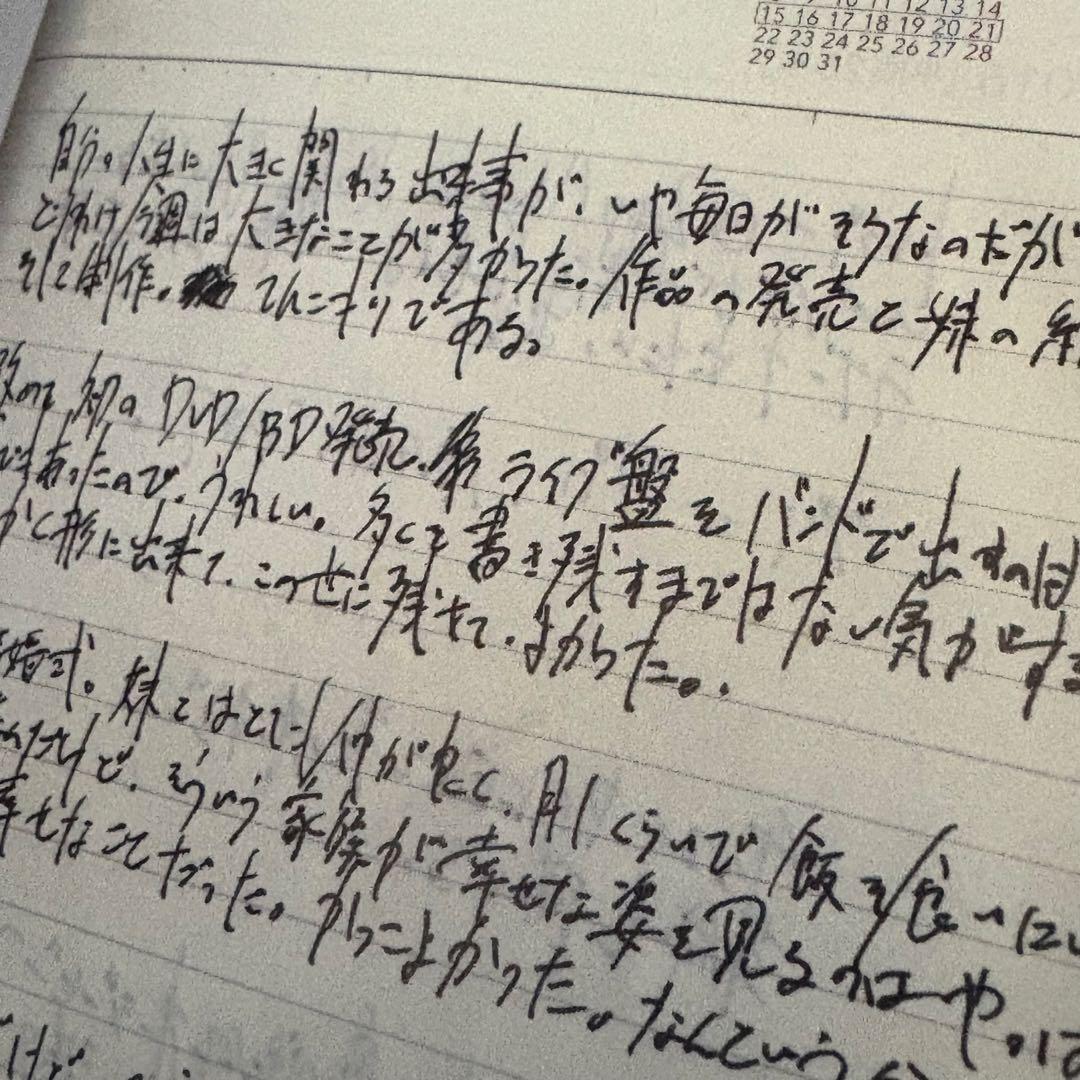 9 10 11 12 13 14
15 16 17 18 19 20 21
22 23 24 25 26 27 28
29 30 31
自分の人生に大きく関わる出来事が、いや毎日がそうなのだが
とりわけ今週は大きなことが多かった。作品の発売と妹の結
そして制作。てんこもりである。
改めて初のDVD/BD発売。ライブ盤をバンドで出すのは
であったので、うれしい。多くを書き残すまではない気がする
がく形に出来て、この世に残せて、よかった。
結婚式。妹とはとても仲が良く、月1くらいで飯を食いに
で、そういう家族が幸せな姿を見るのは、やは
幸せなことだった。かっこよかった。なんていうか